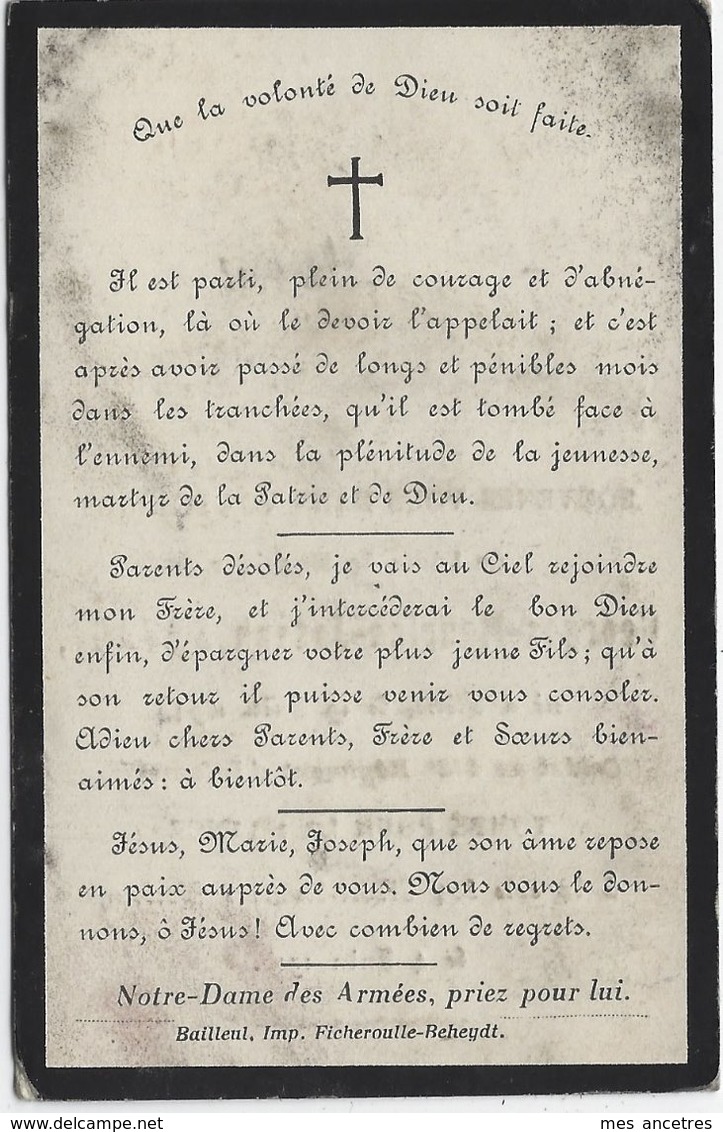 Que la volonté de Dieu soit faite.
Il est parti, plein de courage et d'abné-
gation, là où le devoir l'appelait ; et c'est
après avoir passé de longs et pénibles mois
dans les tranchées, qu'il est tombé face à
l'ennemi, dans la plénitude de la jeunesse,
martyr de la Patrie et de Dieu.
Parents désolés, je vais au Ciel rejoindre
mon Frère, et j'intercéderai le bon Dieu
enfin, d'épargner votre plus jeune Fils ; qu'à
son retour il puisse venir vous consoler.
Adieu chers Parents, Frère et Sœurs bien-
aimés : à bientôt.
Jésus, Marie, Joseph, que son âme repose
en paix auprès de vous. Nous vous le don-
nons, ô Jésus ! Avec combien de regrets.
Notre-Dame des Armées, priez pour lui.
Bailleul, Imp. Ficheroulle-Beheydt.
mes ancetres